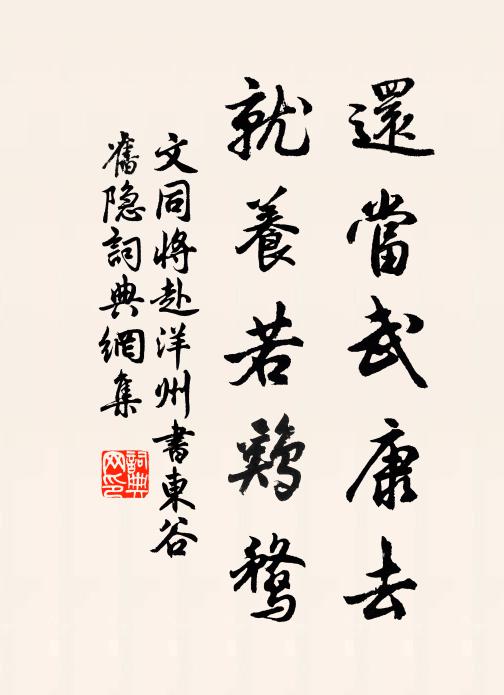 還當武康去
就養若鷄鶩
文同將赴洋州書東谷
舊隐詞典網集
詞典網印